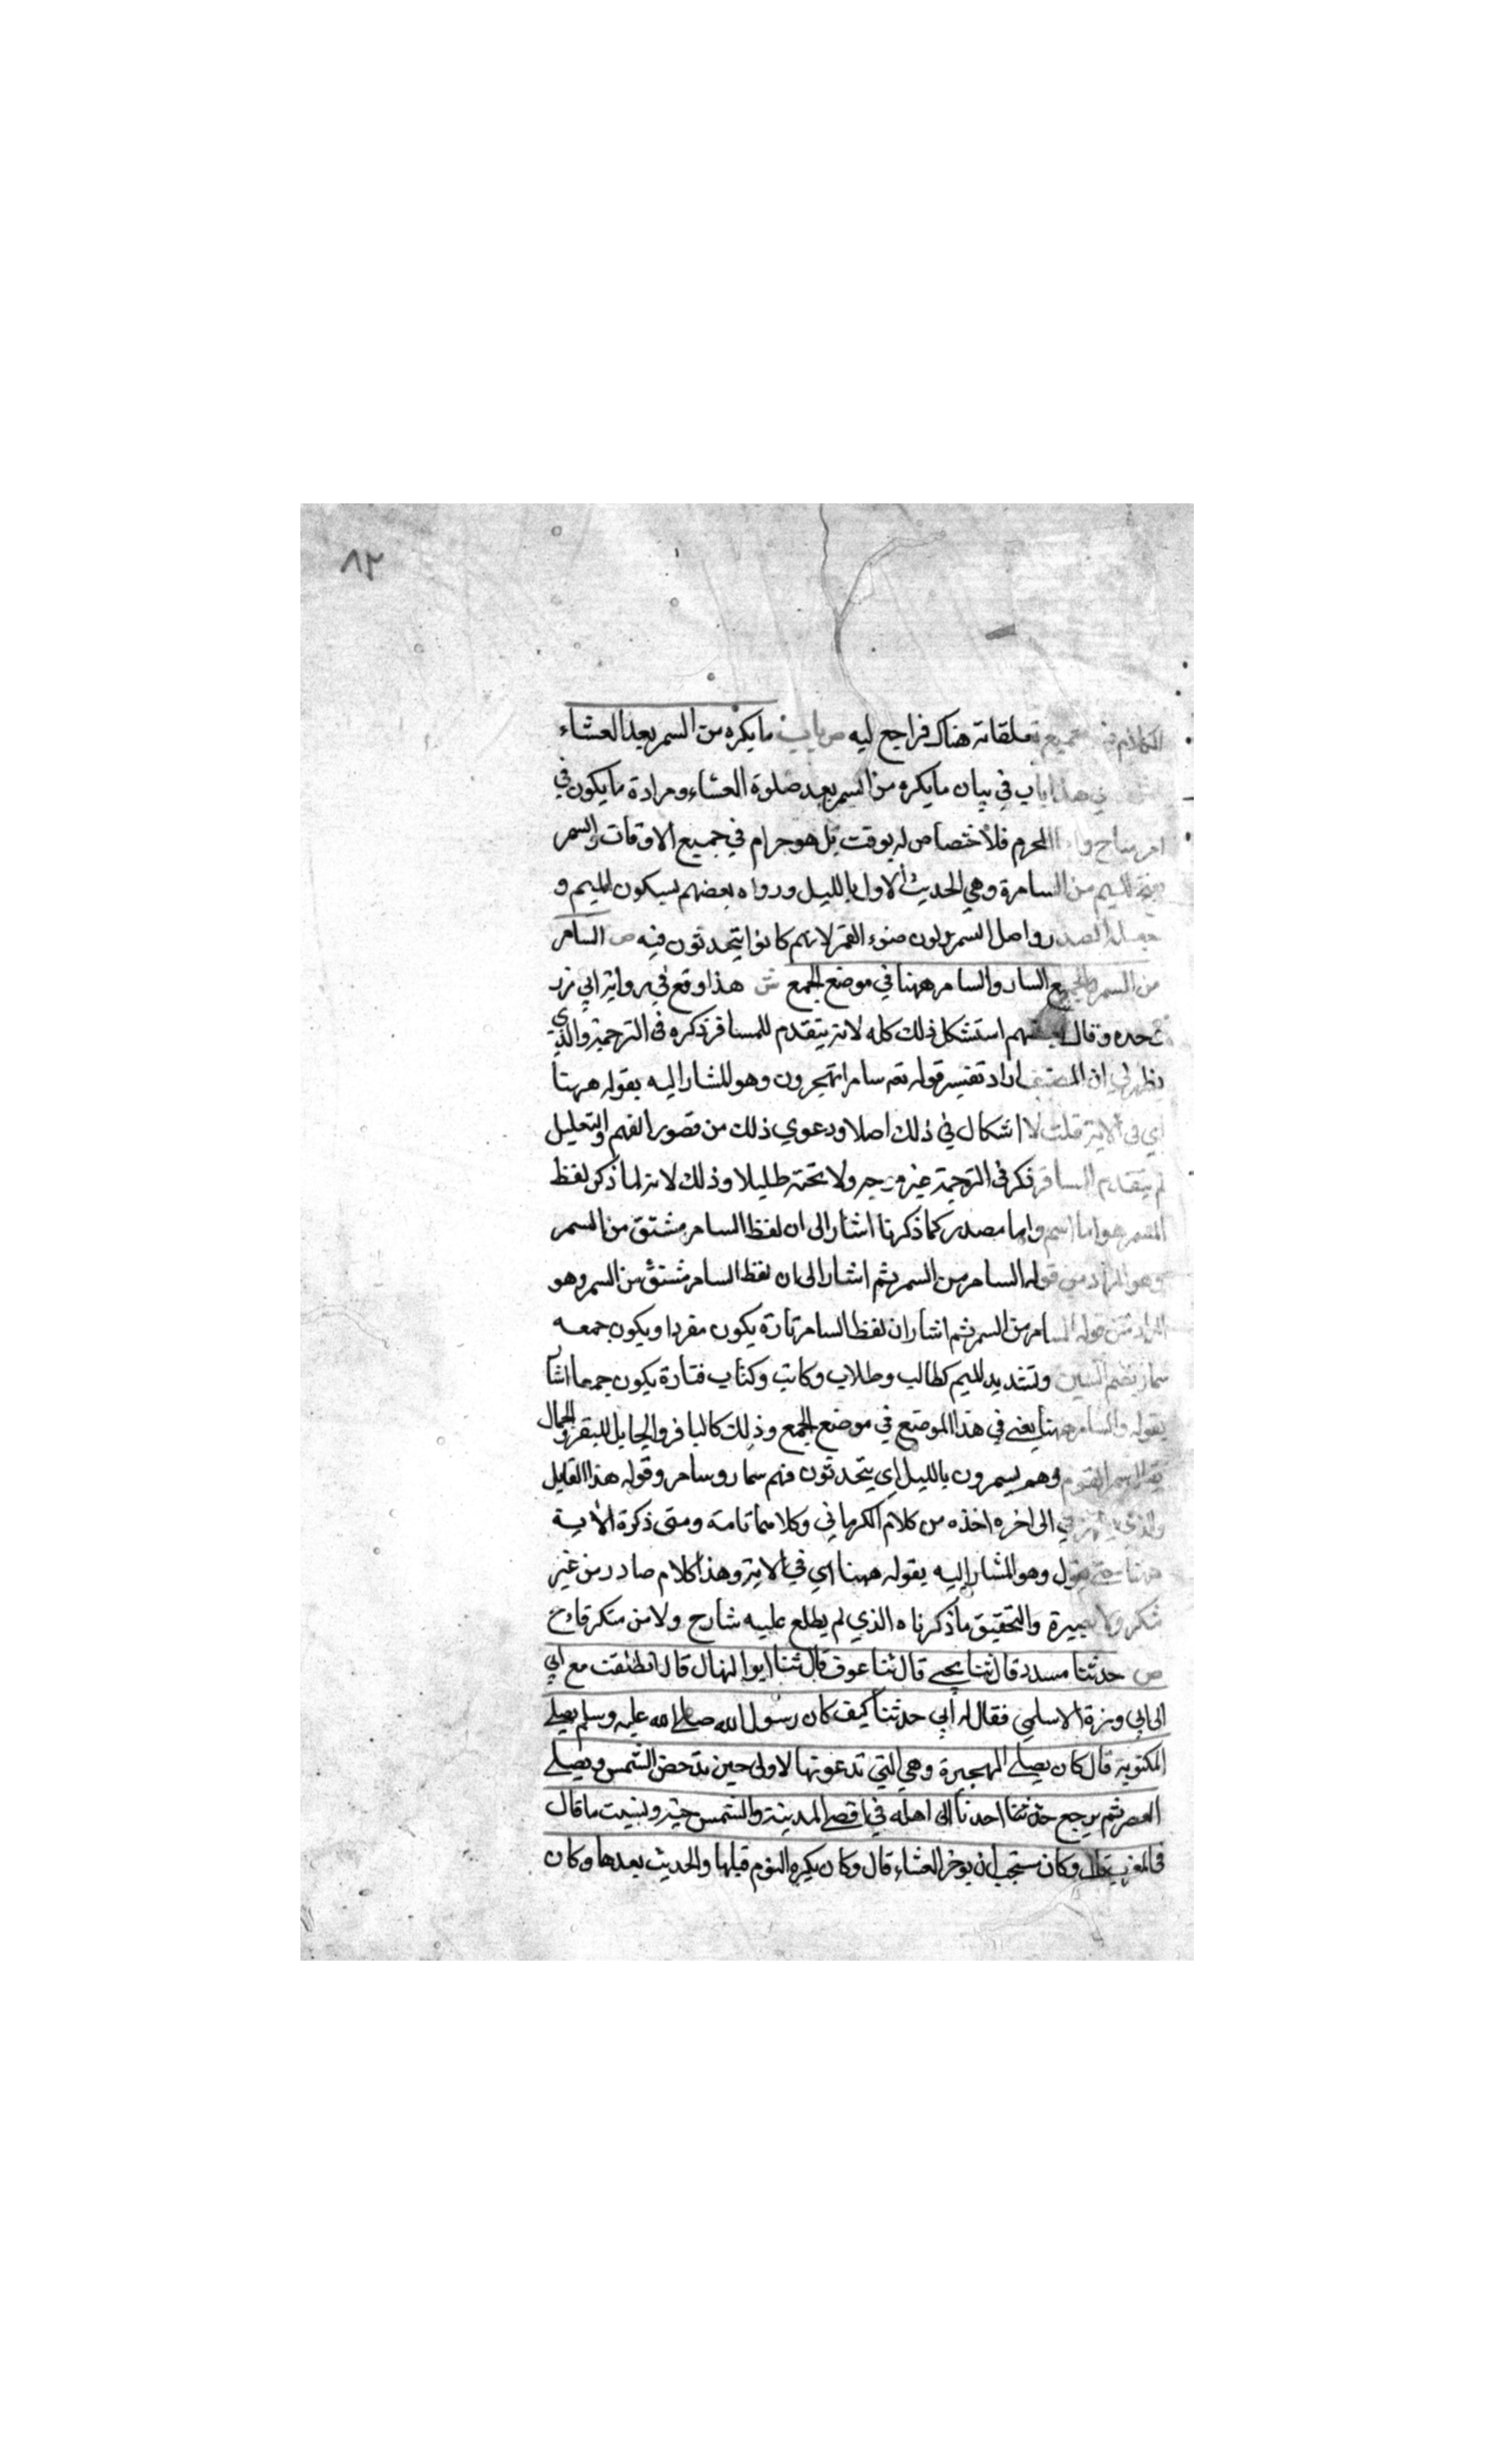 ٨٢
الكلام في جميع تعلقاته هناك فراجع ليه ص باب ما يكره من السمر بعد العشاء
هذا باب في بيان ما يكره من السمر بعد صلوة العشاء ومراده ما يكون في
امر مباح واما المحرم فلا اختصاص له بوقت بل هو حرام في جميع الاوقات والسمر
بفتح الميم من السامرة وهي الحديث الاول بالليل ورواه بعضهم بسكون الميم و
جعله المصدر واصل السمر لون ضوء القمر لانهم كانوا يتحدثون فيه ص السامر
من السمر والجميع السار والسامر ههنا في موضع الجمع ش هذا وقع في رواية ابي زر
وحده وقال بعضهم استشكل ذلك كله لانه يتقدم للمسافر ذكره في الترجمة والذي
يظهر لي ان المصنف اراد تفسير قوله تعم سامرا تهجرون وهو المشار اليه بقوله ههنا
اي في الاية قلت لا اشكال في ذلك اصلا ودعوي ذلك من قصور الفهم والتعليل
لم يتقدم السافر ذكر في الترجمة غير وجه ولا تحته طليلا وذلك لانه لما ذكر لفظ
السمر هو اما اسم واما مصدر كما ذكرنا اشار الى ان لفظ السامر مشتق من السمر
وهو المراد من قوله السامر من السمر ثم اشار الى ان لفظ السامر مشتق من السمر وهو
المراد من قوله السامر من السمر ثم اشار ان لفظ السامر تارة يكون مفردا ويكون جمعه
سمار بضم السين وتشديد الميم كطالب وطلاب وكاتب وكتاب فتارة يكون جمعا اشار
بقوله والسامر ههنا يعني في هذا الموضع في موضع الجمع وذلك كالبا قر والجايل للبقر والجمال
يقال سمر القوم وهم يسمرون بالليل اي يتحدثون فهم سمار وسامر وقوله هذا القايل
والذي يظهر لي الى اخره اخذه من كلام الكرماني وكلاهما تامه ومتى ذكرة الاية
ههنا حتى يقول وهو المشار اليه بقوله ههنا اي في الاية وهذا كلام صادر من غير
تفكر ولا بصيرة والتحقيق ما ذكرناه الذي لم يطلع عليه شارح ولا من متكر قارح
ص حدثنا مسدد قال ثنا يحيى قال ثنا عوف قال ثنا ابو المنهال قال انطلقت مع ابي
الى ابي وبرزة الاسلمي فقال له ابي حدثنا كيف كان رسول الله صلى الله عليه وسلم يصلي
المكتوبة قال كان يصلي الهجيرة وهي التي تدعونها الاولى حين تدحض الشمس ويصلي
العصر ثم يرجع احدنا الى اهله في اقصى المدينة والشمس حية ونسيت ما قال
في المغرب قال وكان يستحب ان يوخر العشاء قال وكان يكره النوم قبلها والحديث بعدها وكان